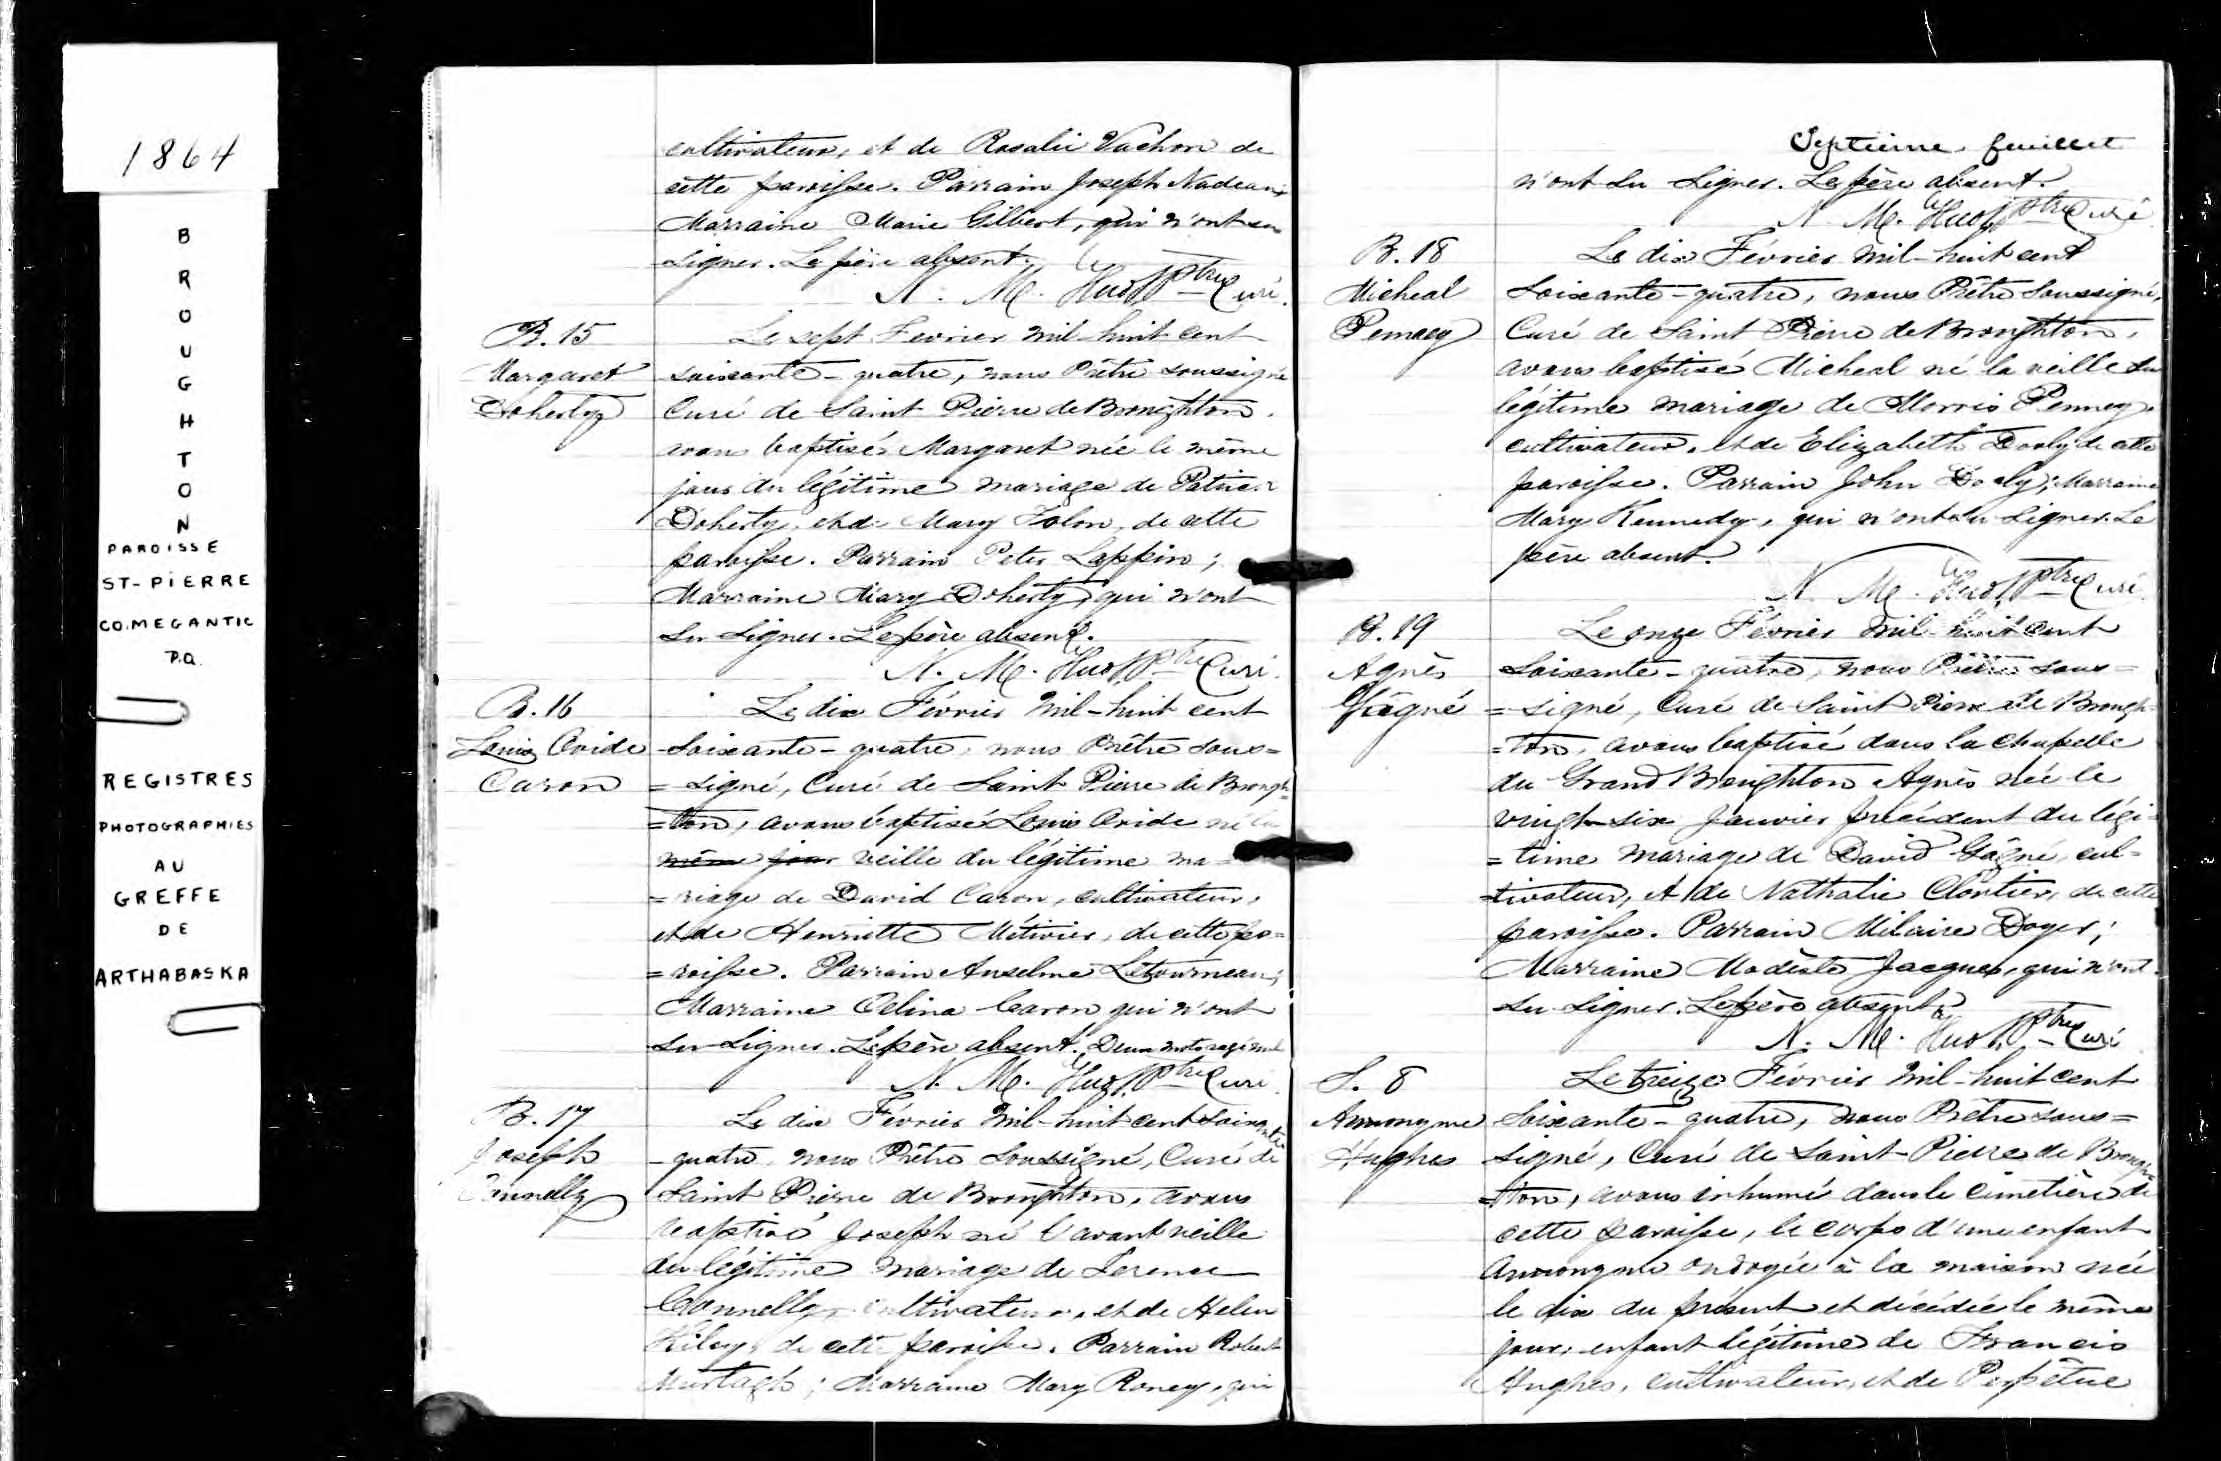 1864
BROUGHTON
PAROISSE
ST-PIERRE
CO. MEGANTIC
P.Q.
REGISTRES
PHOTOGRAPHIES
AU
GREFFE
DE
ARTHABASKA
cultivateur, et de Rosalie Vachon de
cette paroisse. Parrain Joseph Nadeau;
Marraine Marie Gilbert, qui n'ont su
signer. Le père absent.
N. M. Huot Ptre Curé.
B. 15
Margaret
Doherty
Le sept Fevrier mil-huit cent
soixante-quatre, nous Prêtre soussigné
Curé de Saint Pierre de Broughton,
avons baptisé Margaret née le même
jour du légitime mariage de Patrick
Doherty, et de Mary Tolon, de cette
paroisse. Parrain Peter Lappin;
Marraine Mary Doherty, qui n'ont
su signer. Le père absent.
N. M. Huot Ptre Curé.
B. 16
Louis Ovide
Caron
Le dix Février mil-huit cent
soixante-quatre, nous Prêtre sous=
=signé, Curé de Saint Pierre de Brough=
=ton, avons baptisé Louis Ovide né la
même jour veille du légitime ma=
=riage de David Caron, cultivateur,
et de Henriette Métivier, de cette pa=
=roisse. Parrain Anselme Létourneau;
Marraine Célina Caron qui n'ont
su signer. Le père absent. Deux mots rayés nuls
N. M. Huot Ptre Curé
B. 17
Joseph
Connelly
Le dix Février mil-huit cent soixante
quatre, nous Prêtre soussigné, Curé de
Saint Pierre de Broughton, avons
baptisé Joseph né l'avant veille
du légitime mariage de Terence
Connelly, cultivateur, et de Helen
Kiley, de cette paroisse. Parrain Robert
Murtagh; Marraine Mary Roney, qui
Septième feuillet
n'ont su signer. Le père absent.
N. M. Huot Ptre Curé
B. 18
Micheal
Penney
Le dix Février mil-huit cent
soixante-quatre, nous Prêtre soussigné,
Curé de Saint Pierre de Broughton,
avons baptisé Micheal né la veille du
légitime mariage de Morris Penney,
cultivateur, et de Elizabeth Dooly de cette
paroisse. Parrain John Dooly; Marraine
Mary Kennedy, qui n'ont su signer. Le
père absent.
N. M. Huot Ptre Curé.
B. 19
Agnès
Gagné
Le onze Février mil-huit cent
soixante-quatre, nous Prêtre sous=
=signé, Curé de Saint Pierre de Brough=
=ton, avons baptisé dans la chapelle
du Grand Broughton Agnès née le
vingt-six Janvier précédent du légi=
=time mariage de David Gagné, cul=
=tivateur, et de Nathalie Cloutier, de cette
paroisse. Parrain Milaire Doyer;
Marraine Modeste Jacques, qui n'ont
su signer. Le père absent.
N. M. Huot Ptre Curé
S. 8
Annonyme
Hughes
Le treize Février mil-huit cent
soixante-quatre, nous Prêtre sous=
signé, Curé de Saint-Pierre de Brough=
=ton, avons inhumé dans le cimetière de
cette paroisse, le corps d'une enfant
Annonyme ondoyée à la maison née
le dix du présent et décédée le même
jour, enfant légitime de Francis
Hughes, cultivateur, et de Perpétue